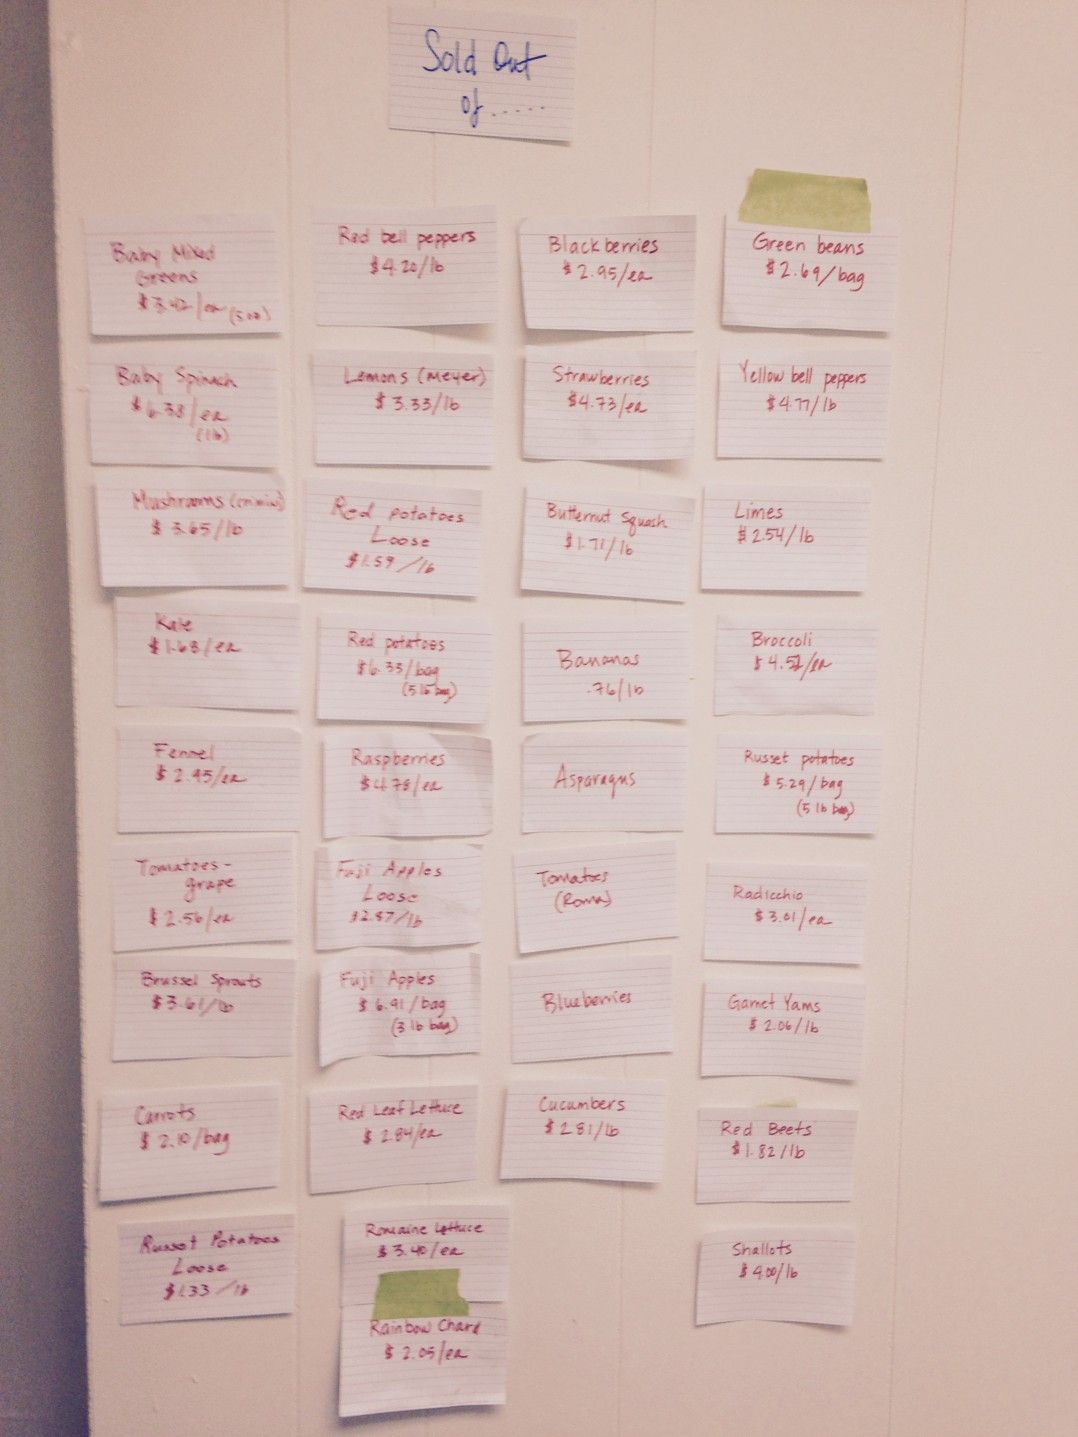 Sold Out
of......
Baby Mixed
Greens
$3.42/ea (5 oz)
Baby Spinach
$6.38/ea
(1 lb)
Mushrooms (crimini)
$3.65/lb
Kale
$1.68/ea
Fennel
$2.95/ea
Tomatoes-
grape
$2.56/ea
Brussel Sprouts
$3.61/lb
Carrots
$2.10/bag
Russet Potatoes
Loose
$1.33/lb
Red bell peppers
$4.20/lb
Lemons (Meyer)
$3.33/lb
Red potatoes
Loose
$1.59/lb
Red potatoes
$6.33/bag
(5 lb bag)
Raspberries
$4.78/ea
Fuji Apples
Loose
$2.87/lb
Fuji Apples
$6.91/bag
(3 lb bag)
Red Leaf Lettuce
$2.84/ea
Romaine Lettuce
$3.40/ea
Rainbow Chard
$2.05/ea
Blackberries
$2.95/ea
Strawberries
$4.73/ea
Butternut Squash
$1.71/lb
Bananas
.76/lb
Asparagus
Tomatoes
(Roma)
Blueberries
Cucumbers
$2.81/lb
Green beans
$2.69/bag
Yellow bell peppers
$4.77/lb
Limes
$2.54/lb
Broccoli
/ea
Russet potatoes
$5.29/bag
(5 lb bag)
Radicchio
$3.01/ea
Garnet Yams
$2.06/lb
Red Beets
$1.82/lb
Shallots
$4.00/lb